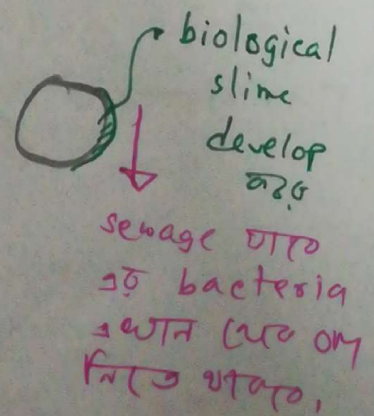 biological
slime
develop
করে
sewage যাবে
এর bacteria
এখান থেকে om
নিতে থাকবে,